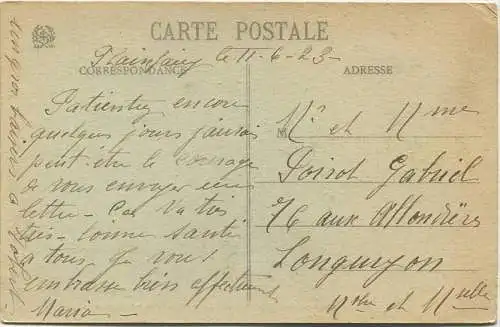 CARTE POSTALE
Plainfaing le 11-6-23-
CORRESPONDANCE
ADRESSE
Patientez encore
quelques jours j'aurai
peut être le courage
de vous envoyer une
lettre - Ca va
très - bonne santé
a tous - Je vous
embrasse bien affectueusement
Maria
un gros baiser a
M
Mr et Mme
Poirot Gabriel
aux
Longuyon
Mthe et Mselle